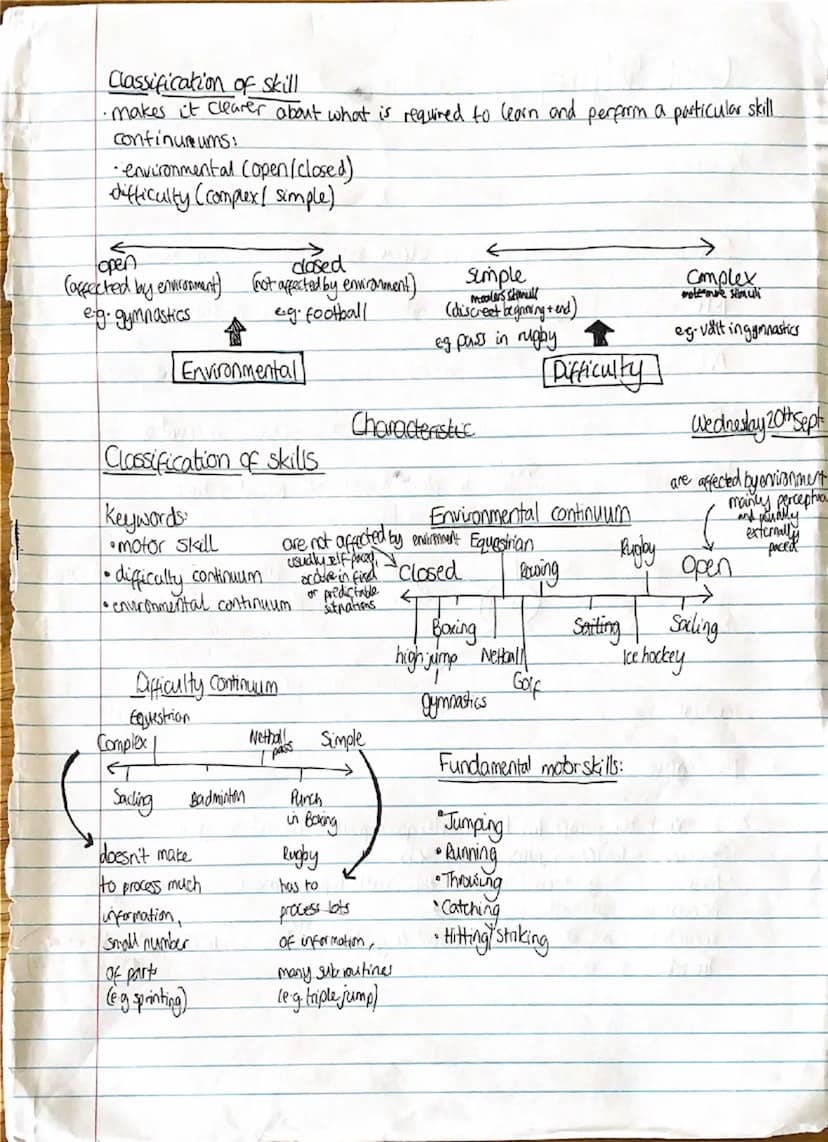 Classification of skill
· makes it clearer about what is required to learn and perform a particular skill
continureums:
· environmental (open/closed)
difficulty (complex/ simple)
open
(affected by environment)
e.g. gymnastics
closed
(not affected by environment)
e.g. football
Environmental
simple
(discreet beginning + end)
eg pass in rugby
complex
e.g. vault in gymnastics
Difficulty
Characteristic
Wednesday 20th Sept
Classification of skills
Keywords:
• motor skill
• difficulty continuum
• environmental continuum
Environmental continuum
are not affected by environment
usually self paced,
occure in fixed
or predictable
situations
are affected by environment
mainly perceptual
and usually
externally
paced
Closed
Equestrian
Rowing
Rugby
Open
Boxing
Sailing
Sailing
high jump
Netball
Ice hockey
Golf
gymnastics
Difficulty continuum
Equestrian
Complex
Netball
pass
Simple
Sailing
Badminton
Punch
in Boxing
Rugby
doesn't make
to process much
information,
small number
of parts
(e.g sprinting)
has to
process lots
of information,
many sub routines
(e.g. triple jump)
Fundamental motor skills:
• Jumping
• Running
• Throwing
• Catching
• Hitting/ striking